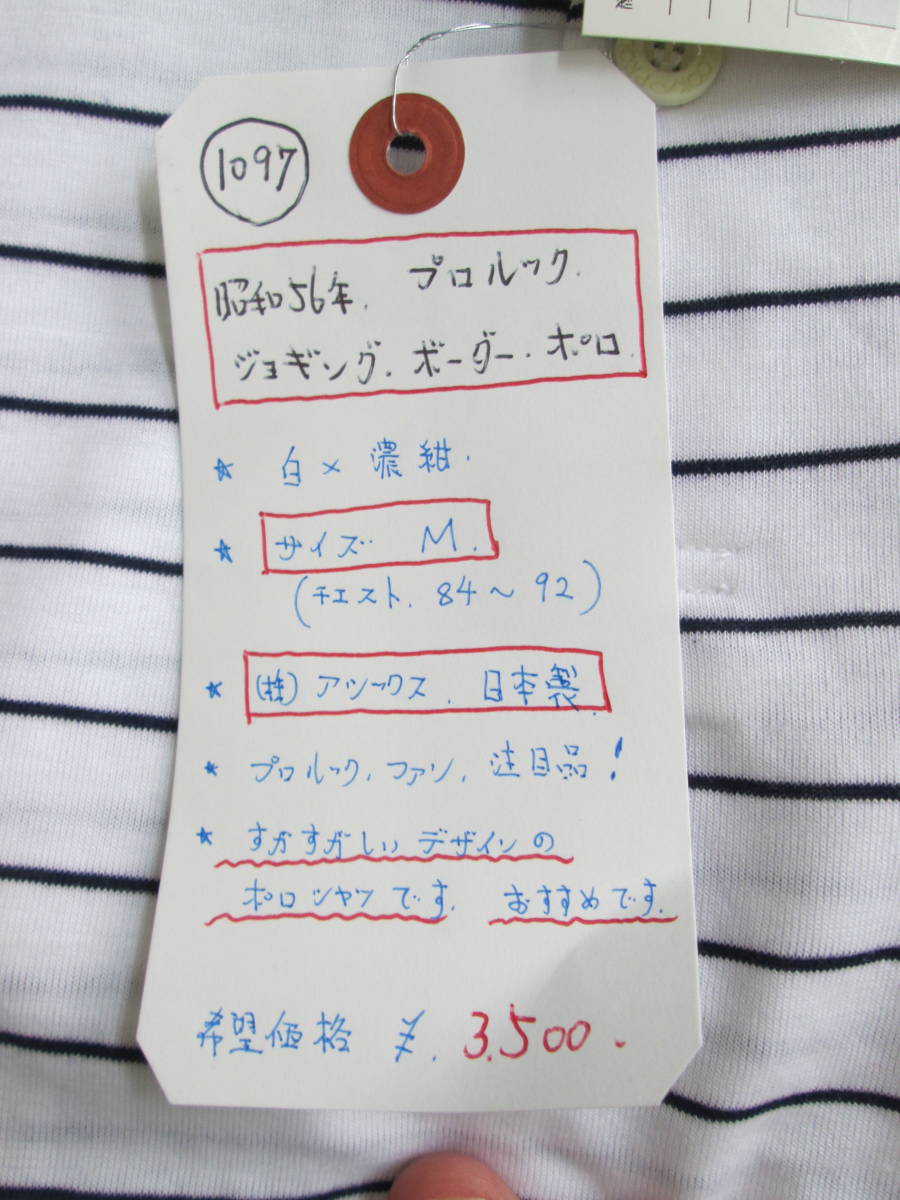 1097
昭和56年. プロルック.
ジョギング. ボーダー. ポロ.
☆ 白×濃紺.
☆ サイズ M.
(チェスト. 84〜92)
☆ (株)アシックス. 日本製.
☆ プロルック. ファン. 注目品!
☆ すがすがしいデザインの
ポロシャツです. おすすめです.
希望価格 ¥. 3.500.